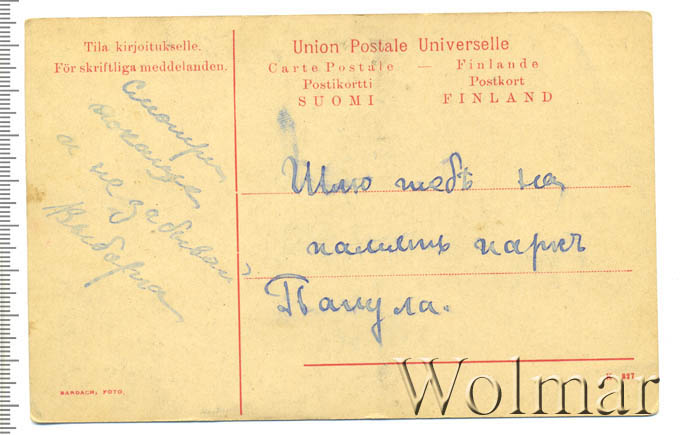 Tila kirjoitukselle.
För skriftliga meddelanden.
Union Postale Universelle
Carte Postale — Finlande
Postikortti Postkort
SUOMI FINLAND
Смотри
и не забывай
Выборга
Шлю тебѣ на
память паркъ
Папула.
BARDACH, FOTO.
827
Wolmar